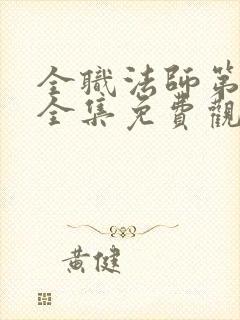 全職法師第
全集免費觀
黃健